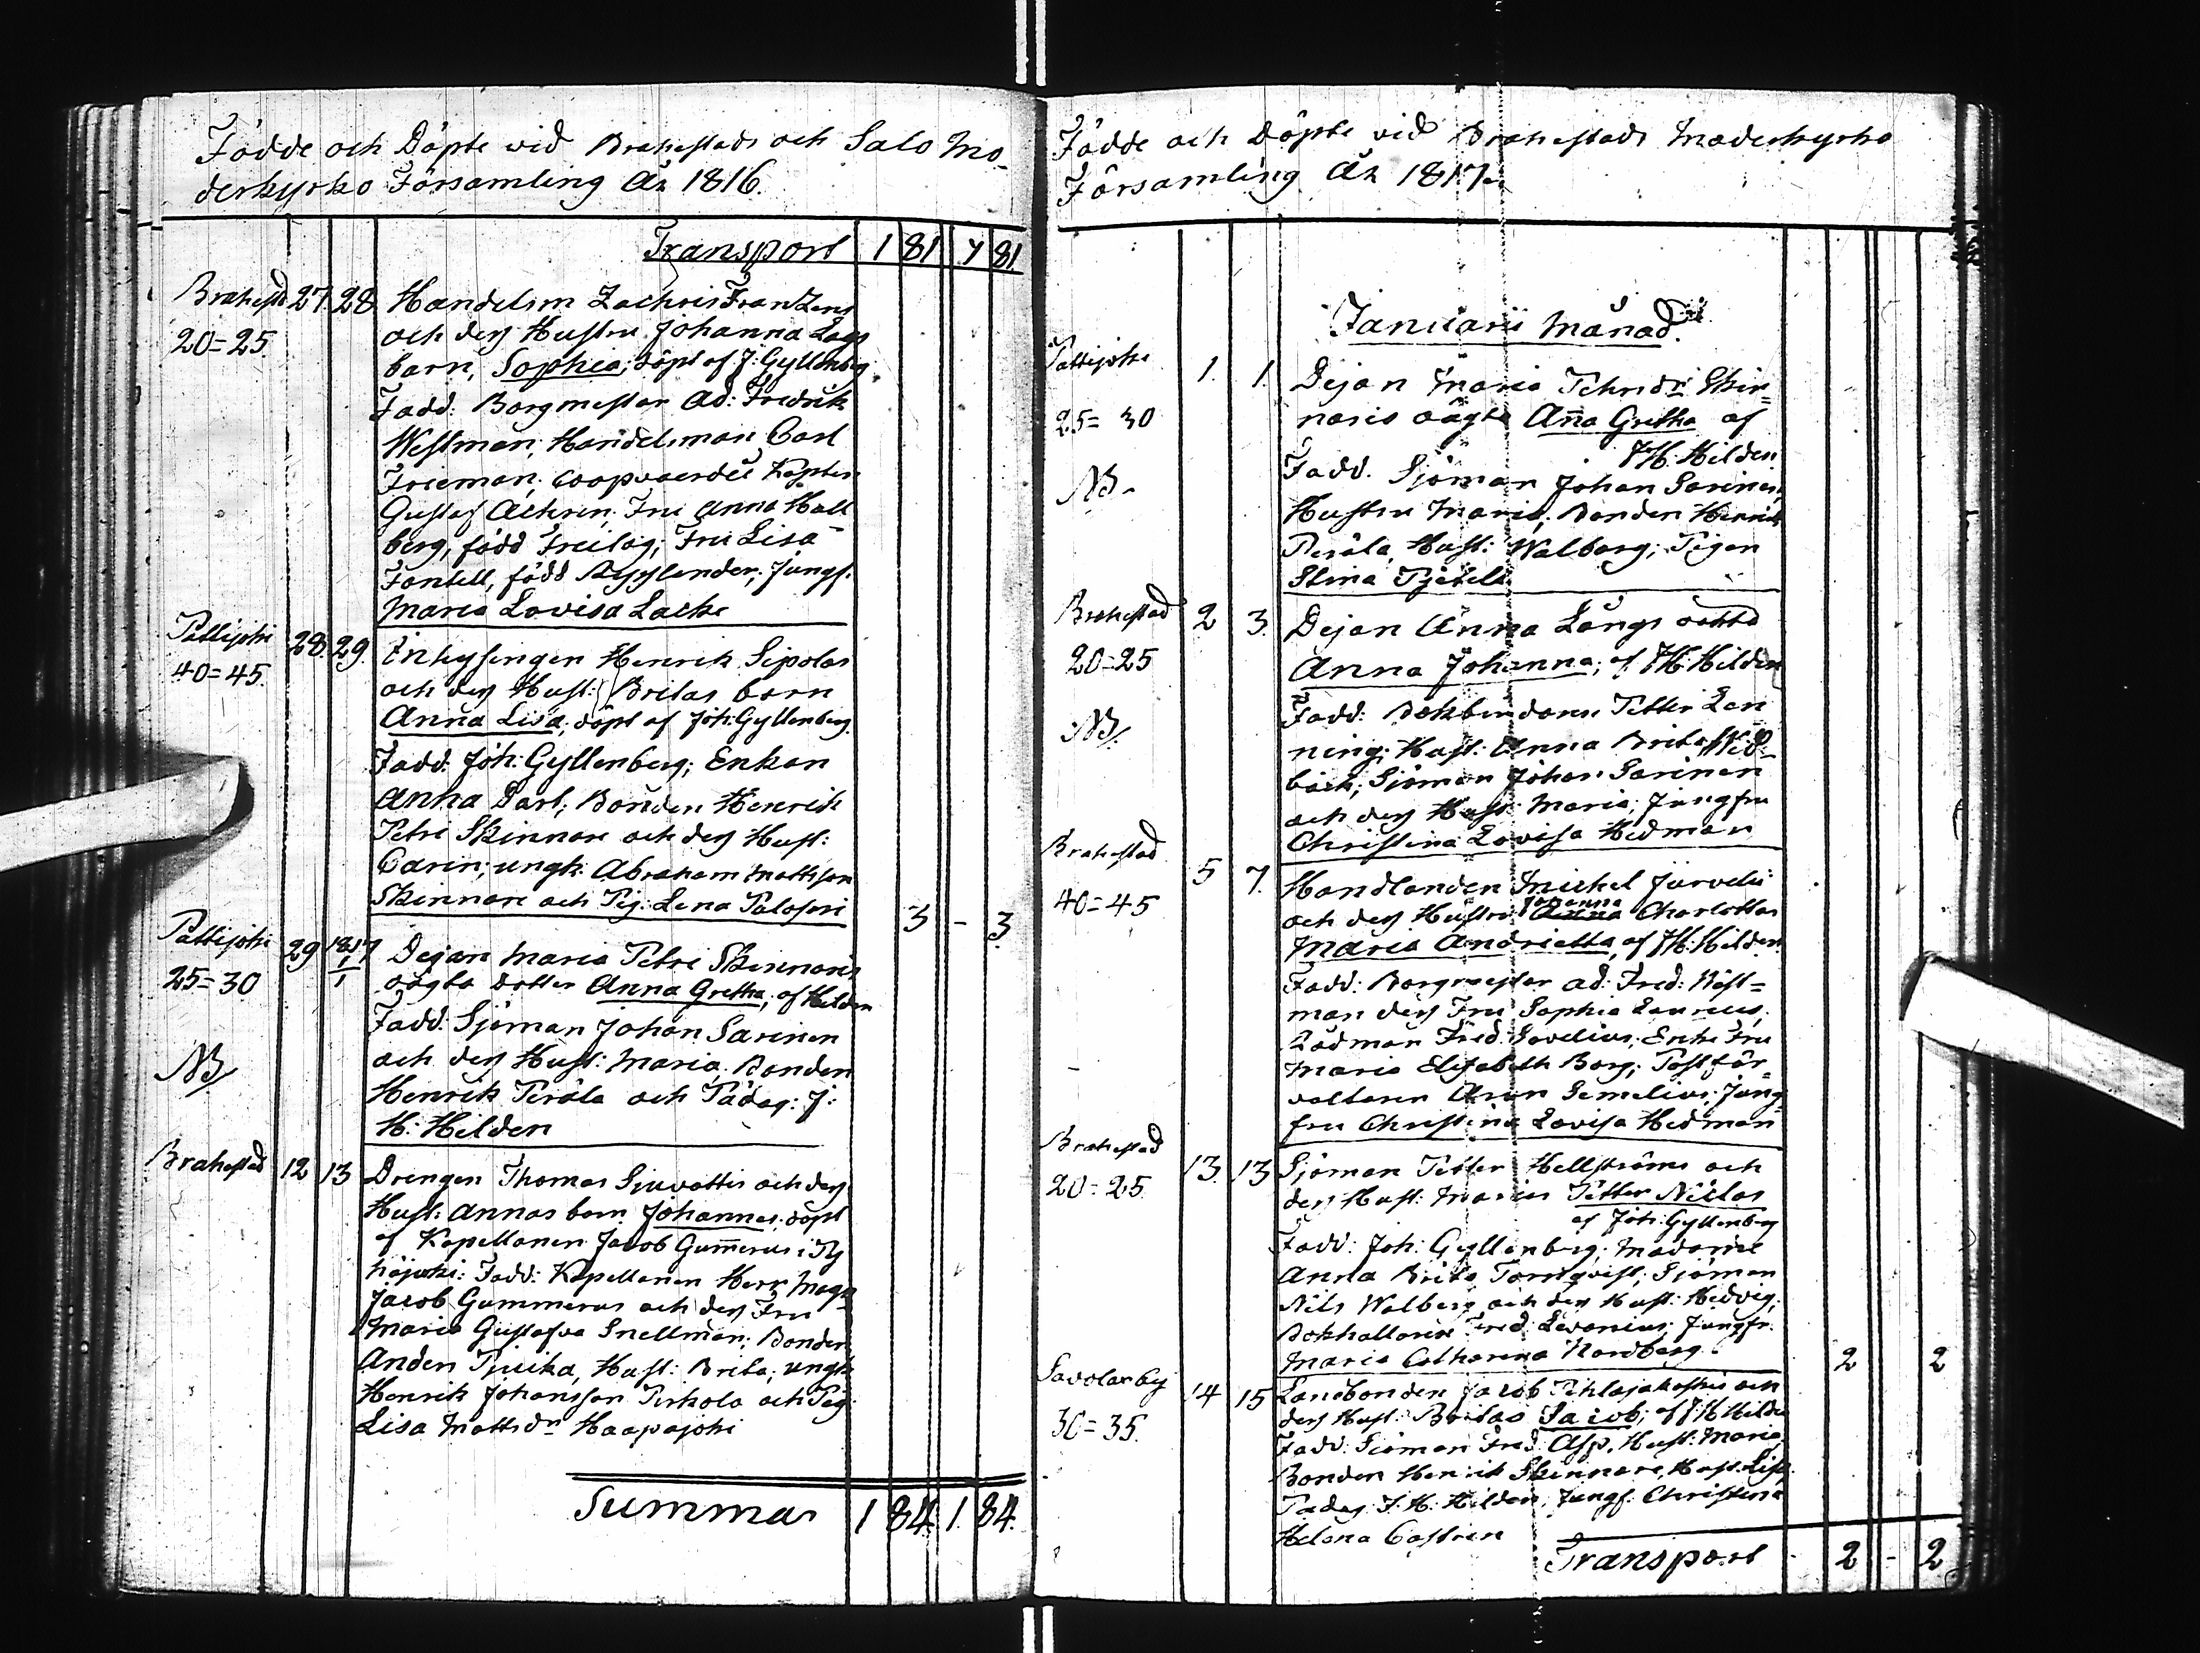 Födde och Döpte vid Brahestads och Salo Mo-
derkyrko Församling År 1816.
Transport 1 81 7 81
Brahestd 27 28 Handelsm Zachris Franzens
20=25 och dess Hustru Johanna
barn, Sophia; döpt af J: Gyllenberg.
Fadd: Borgmestar Ad: Fredrik
Westman; Handelsman Carl
Frieman; Coopvaerdie Kapten
Gustaf Achrén; Fru Anna Hall
berg, född Freitag; Fru Lisa
Fontell, född; Jungf.
Maria Lovisa Lacke
Pattijoki 28. 29. Inhysingen Henrik Sipolas
40=45. och dess Hust: Britas barn
Anna Lisa, döpt af Joh: Gyllenberg.
Fadd: Joh: Gyllenberg; Enkan
Anna Dart; Bonden Henrik
Petri Skinnare och dess Hust:
Carin; ungk: Abraham Mattsson
Skinnare och Pig: Lena Palosari 3 - 3
Pattijoki 29 1817 1/1 Dejan Maria Petri Skinnaris
25=30 oägta Dotter Anna Gretha; af Hilden
Fadd: Sjöman Johan Sarinen
och dess Hust: Maria. Bonden
NB/ Henrik Peräla och Pädag: J:
H: Hilden
Brahestad 12 13 Drengen Thomas och dess
Hust: Annas barn Johannes, döpt
af Kapellanen Jacob Gum̄erus i Py
häjoki: Fadd: Kapellanen Herr Mag:
Jacob Gummerus och dess Fru
Maria Gustafva Snellman; Bonden
Anders, Hust: Brita; ungk
Henrik Johansson Pirkola och Pig:
Lisa Mattsdr Haapajoki
Summa 1 84 1. 84.
Födde och Döpte vid Brahestads Moderkyrko
Församling År 1817.
Januarii Månad.
Pattijoki 1. 1. Dejan Maria Petrid:r Skin=
25=30 naris oägta An̄a Gretha af
JH: Hilden.
NB- Fadd. Sjöman Johan Sarinen,
Hustru Maria; Bonden Henrik
Peräla, Hust: Walborg; Pigan
Stina
Brahestad 2 3. Dejan Anna Långs oäkta
20=25 Anna Johanna; af JH: Hilden
NB/. Fadd: Bokbindaren Petter Len
ning; Hust: Anna Brita Wid-
bäck; Sjöman Johan Sarinen
och dess Hust: Maria; Jungfru
Christina Lovisa Hedman
Brahestad 5 7. Handlanden Michel Jurvelii
40=45 och dess Hustru Johanna Anna Charlottas
Maria Andrietta, af JH: Hilden.
Fadd: Borgmestar Ad: Fred: Wäst=
man dess Fru Sophia;
Rådman Fred: Sovelius; Enke Fru
Maria Elisabeth Borg; Postför=
valtaren; Jung-
fru Christina Lovisa Hedman
Brahestad 13. 13 Sjöman Petter Hellströms och
20=25. dess Hust: Marias Petter Niclas
af Joh: Gyllenberg
Fadd: Joh: Gyllenberg; Madame
Anna Brita Tornqvist; Sjöman
Nils Walberg och dess Hust: Hedvig;
Bokhallaren Fred:; Jungfr:
Maria Catharina Nordberg. 2 2
Savolax by 14 15 Landbonden Jacob Pehlajakoskis och
30=35. dess Hust: Britas Jacob; af JH Hilden
Fadd: Sjöman Fred: Asp, Hust: Maria;
Bonden Henrik Skinnare, Hust: Lisa,
Padag J: H: Hilden, Jungf: Christina
Helena Castren
Transport - 2 - 2